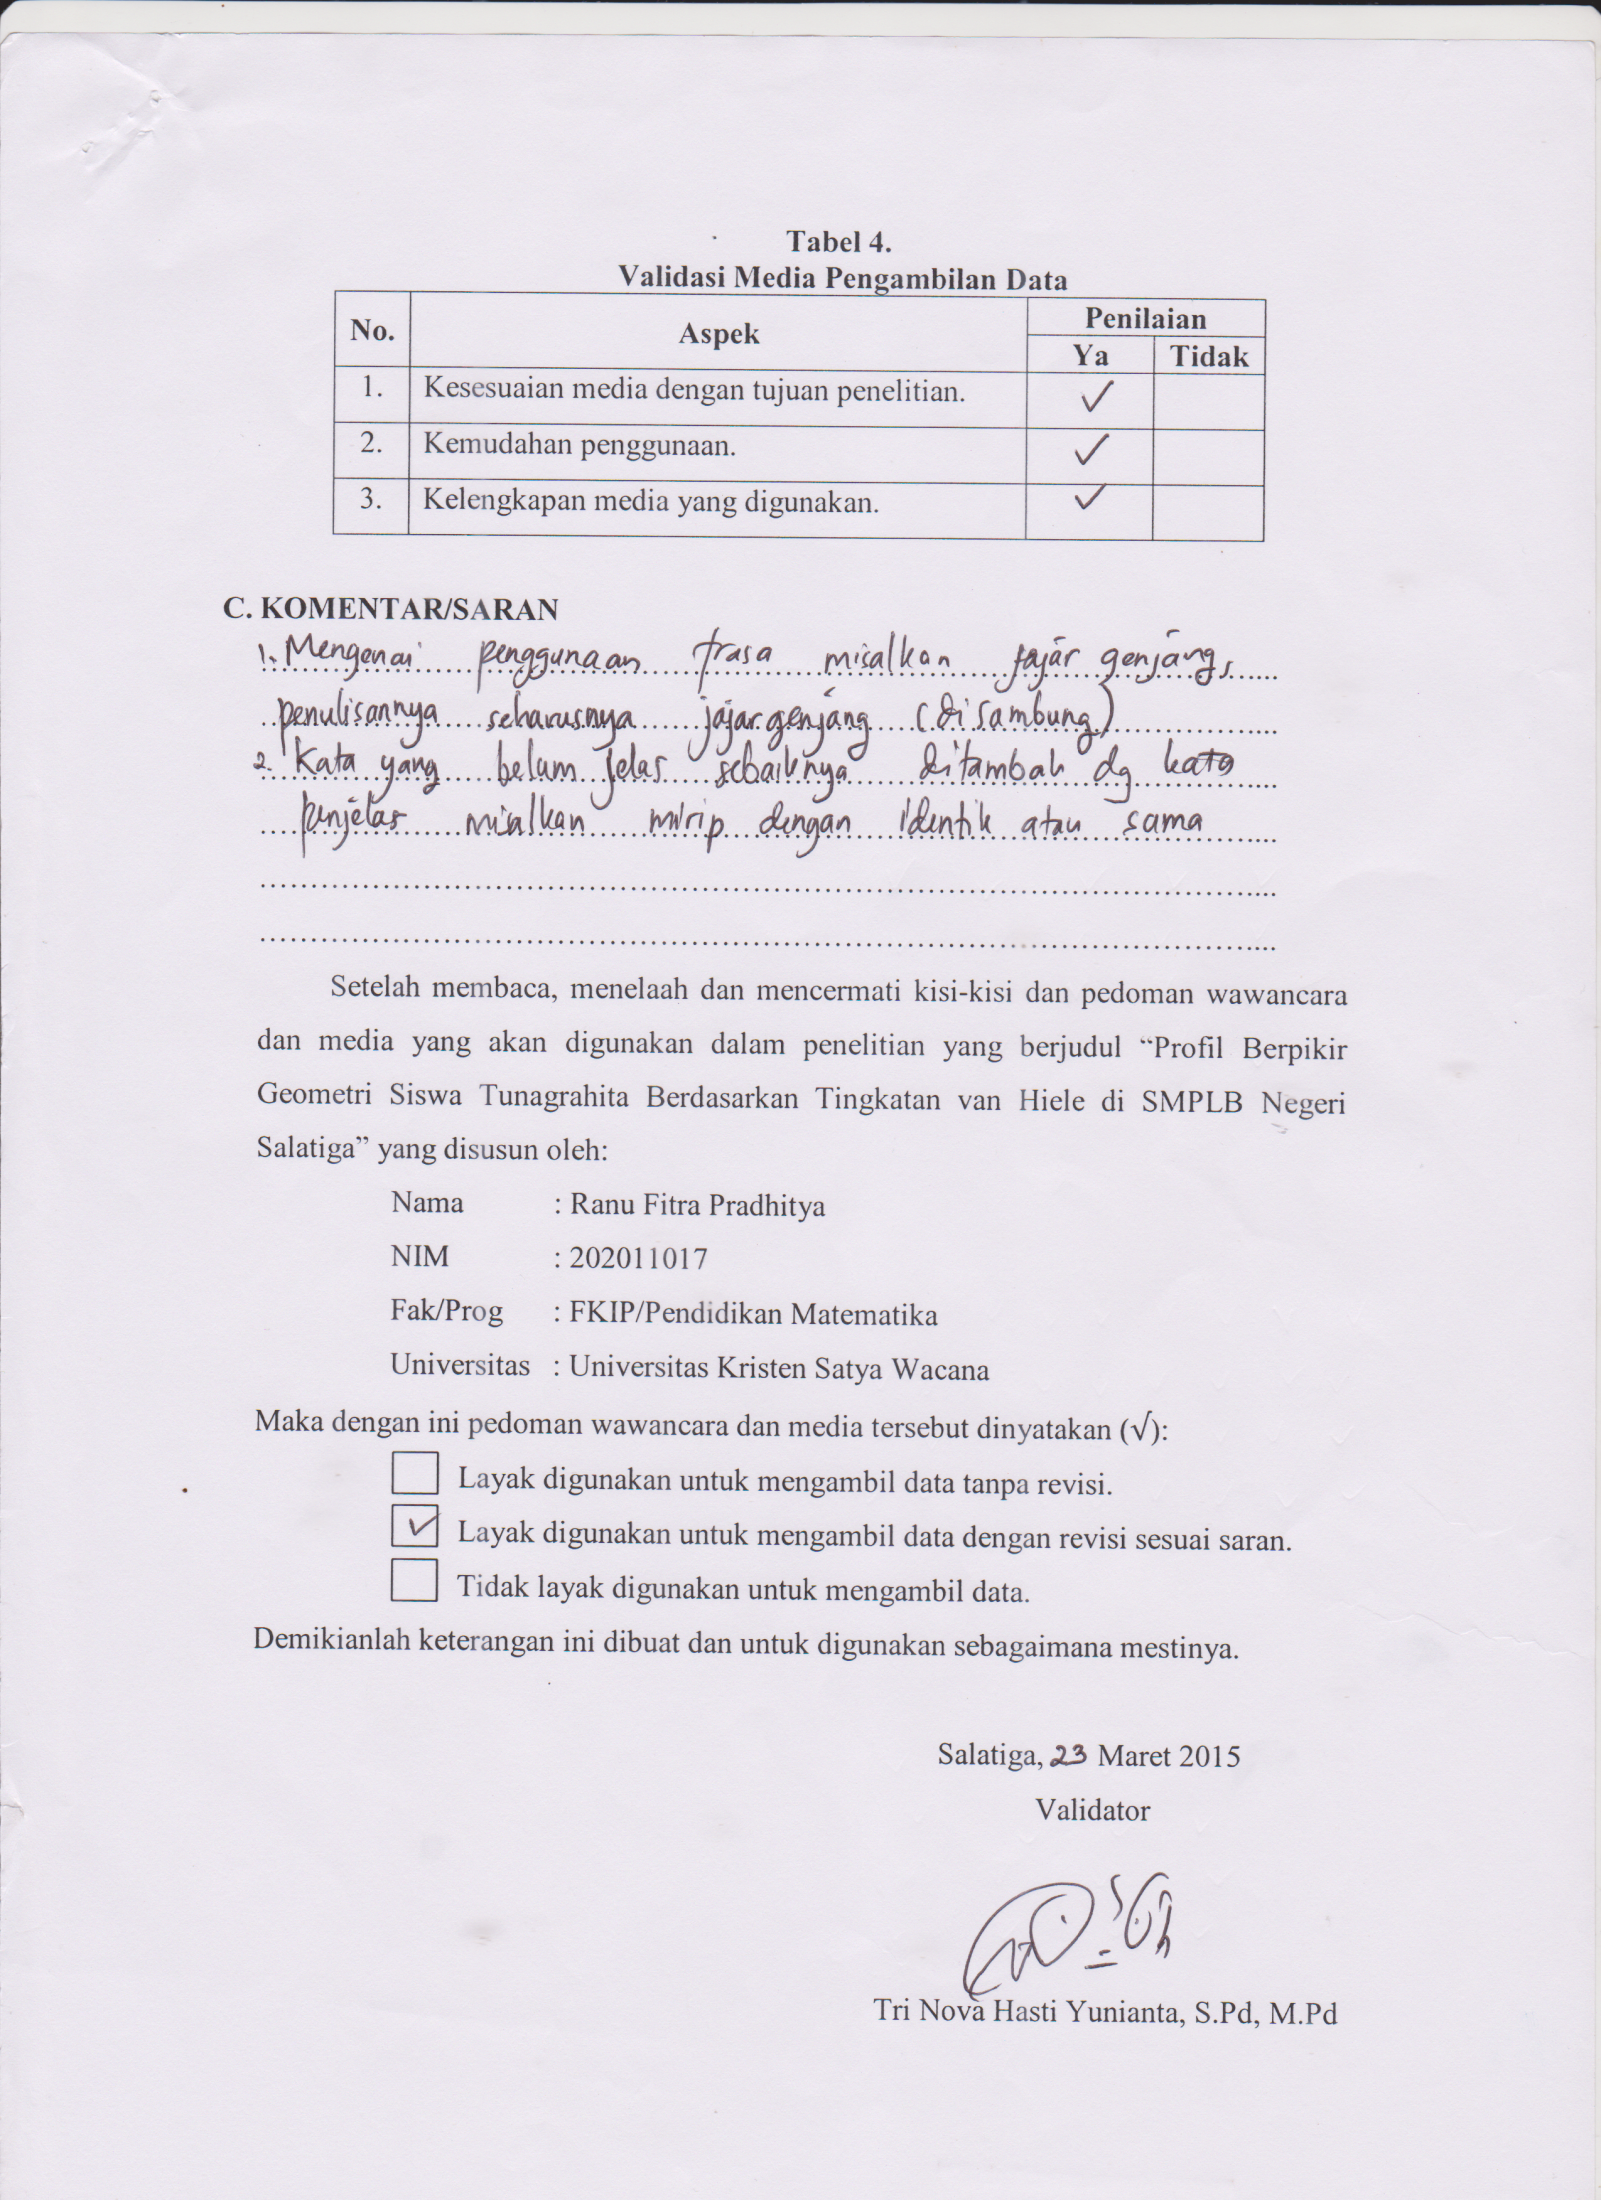 Tabel 4.
Validasi Media Pengambilan Data
No. Aspek Penilaian
Ya Tidak
1. Kesesuaian media dengan tujuan penelitian. ✓
2. Kemudahan penggunaan. ✓
3. Kelengkapan media yang digunakan. ✓
C. KOMENTAR/SARAN
1. Mengenai penggunaan frasa misalkan jajar genjang,
penulisannya seharusnya jajargenjang (disambung)
2. Kata yang belum jelas sebaiknya ditambah dg kata
penjelas misalkan mirip dengan identik atau sama
Setelah membaca, menelaah dan mencermati kisi-kisi dan pedoman wawancara
dan media yang akan digunakan dalam penelitian yang berjudul “Profil Berpikir
Geometri Siswa Tunagrahita Berdasarkan Tingkatan van Hiele di SMPLB Negeri
Salatiga” yang disusun oleh:
Nama : Ranu Fitra Pradhitya
NIM : 202011017
Fak/Prog : FKIP/Pendidikan Matematika
Universitas : Universitas Kristen Satya Wacana
Maka dengan ini pedoman wawancara dan media tersebut dinyatakan (√):
Layak digunakan untuk mengambil data tanpa revisi.
✓ Layak digunakan untuk mengambil data dengan revisi sesuai saran.
Tidak layak digunakan untuk mengambil data.
Demikianlah keterangan ini dibuat dan untuk digunakan sebagaimana mestinya.
Salatiga, 23 Maret 2015
Validator
Tri Nova Hasti Yunianta, S.Pd, M.Pd